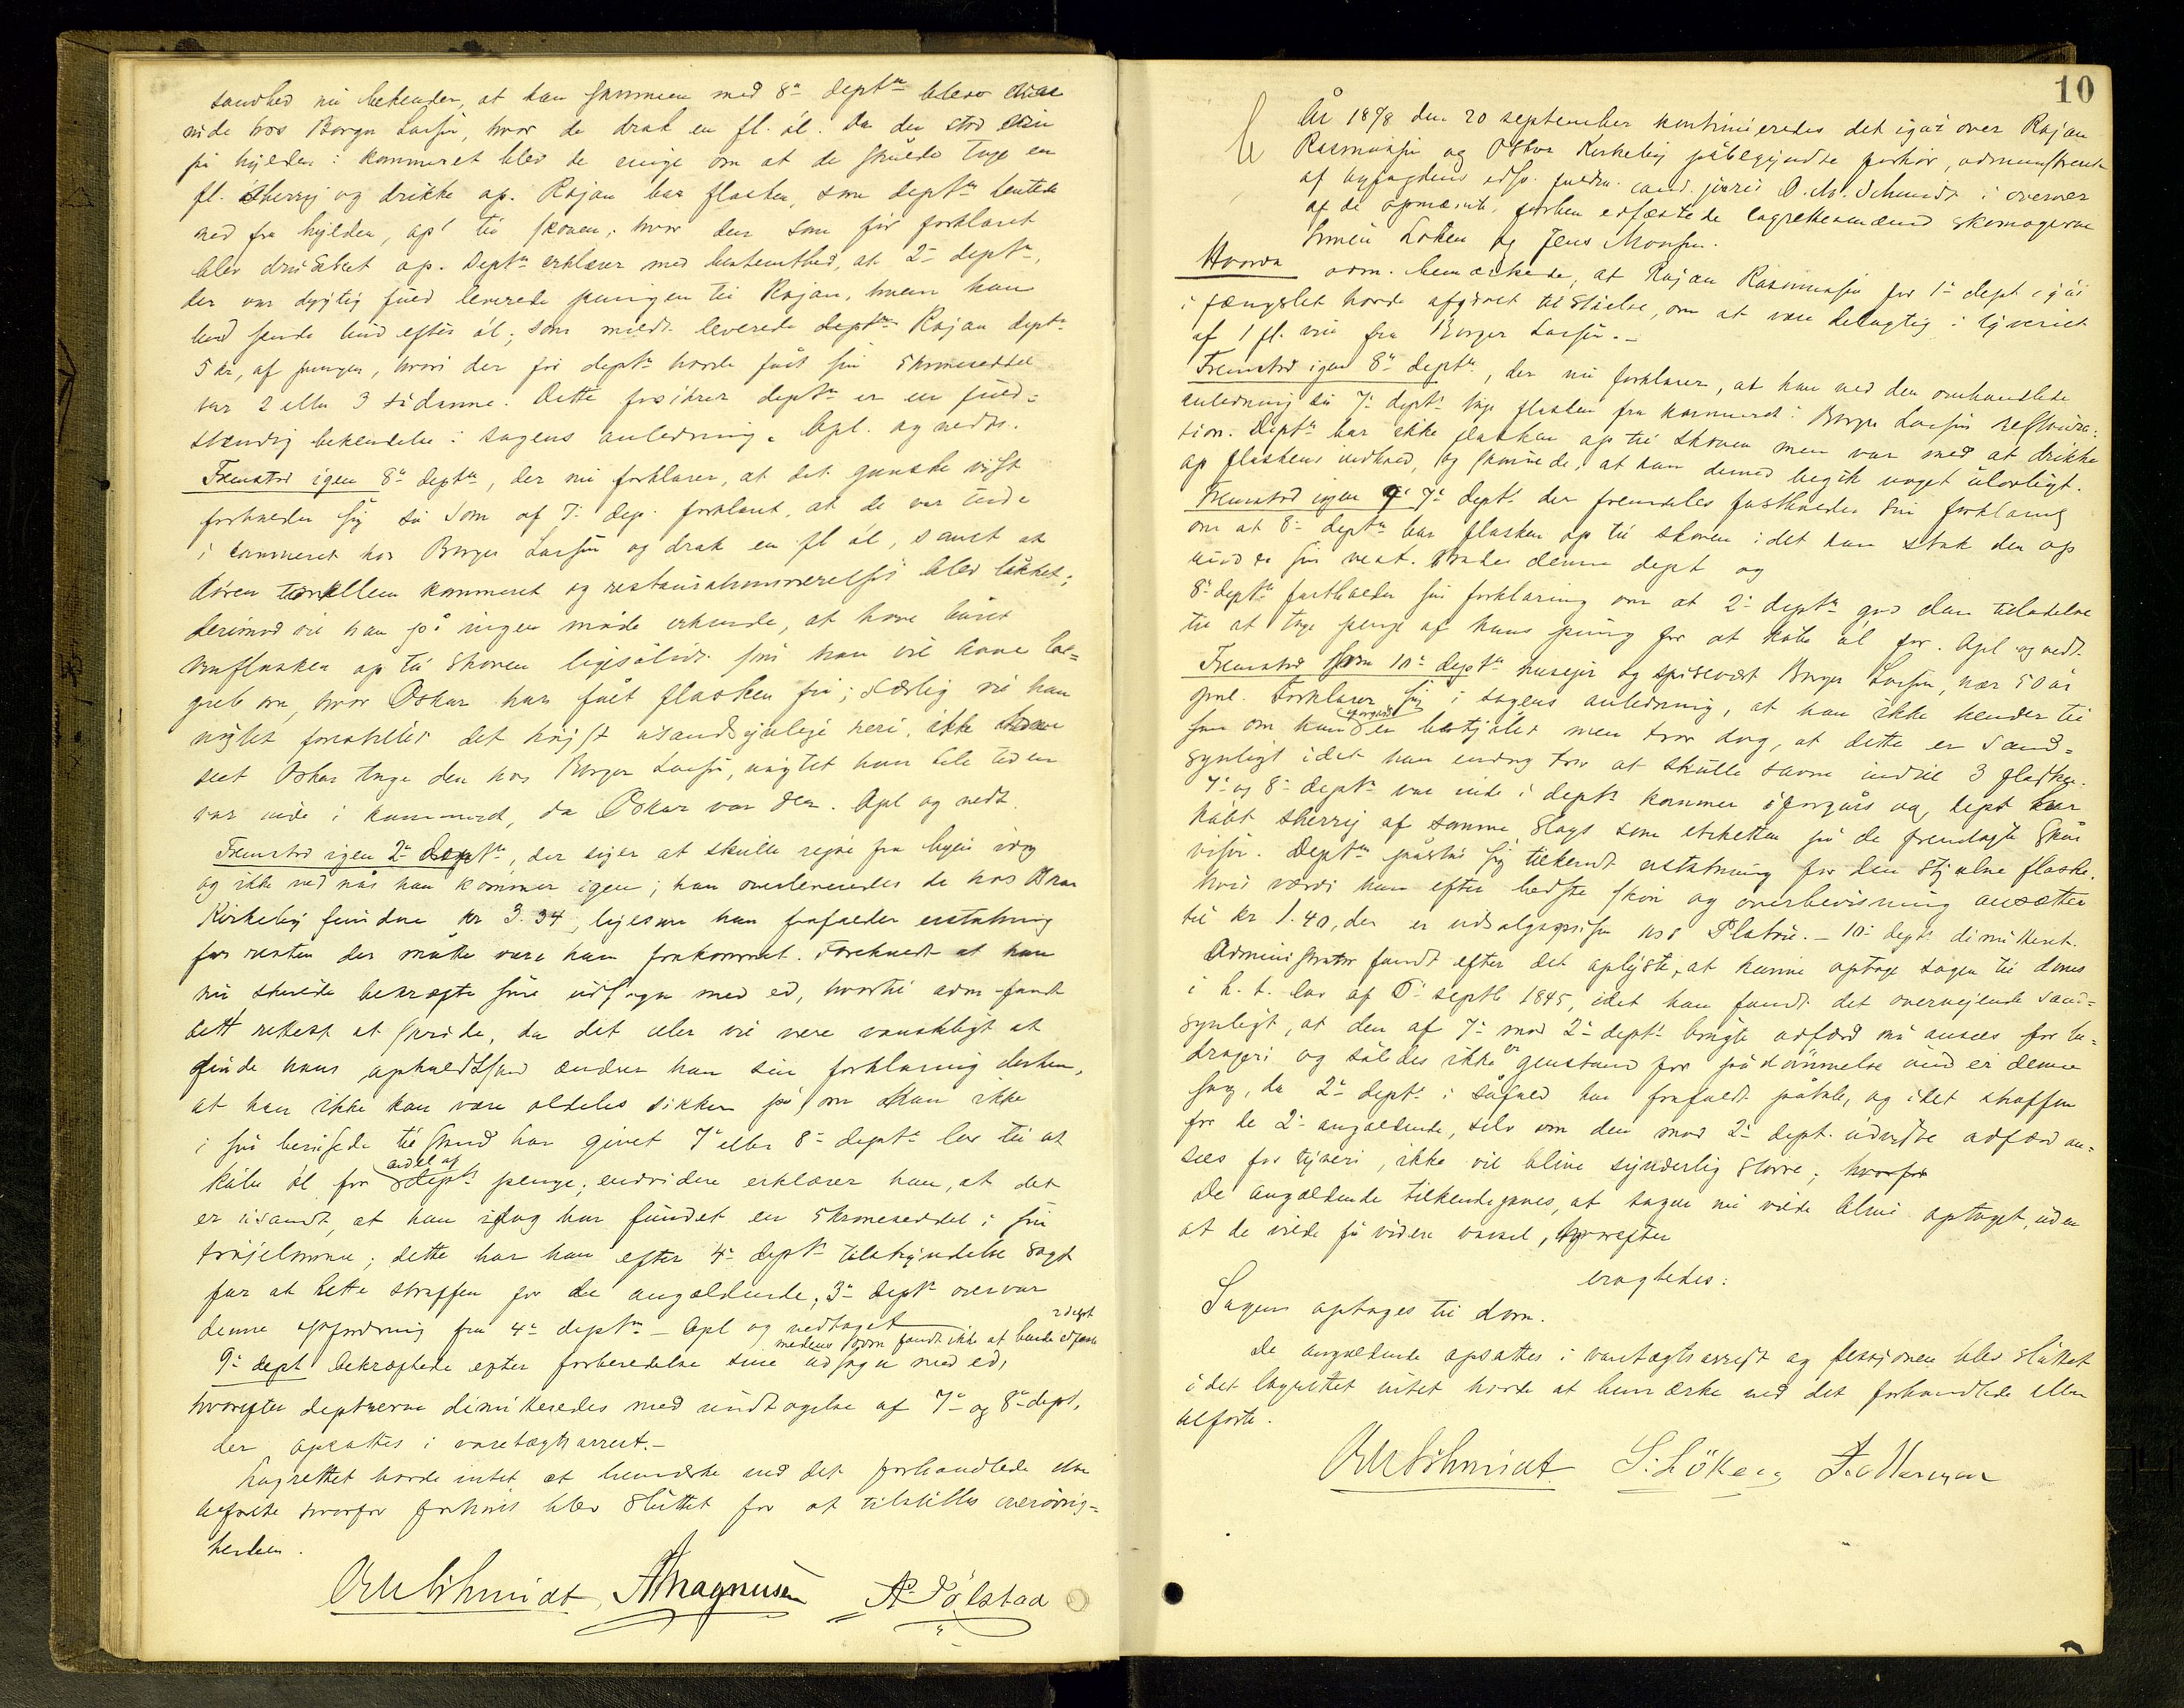 sandhed nu bekender, at han sammen med 8de deptn blev
inde hos Borger Larsen, hvor de drak en fl. öl. Da der stod vin
på hylden i kammeret blev de enige om at de skulde tage en
fl. sherry og drikke op. Rojan bar flasken, som deptn hentede
ned fra hylden, op til skoven, hvor den som för forklaret
blev drukket op. Deptn erklærer med bestemthed, at 2de deptn,
der var dygtig fuld leverede pungen til Rojan, hvem han
bad sende bud efter öl; som meldt leverede deptn Rojan deptn
5 kr, af pungen, hvori der för deptn havde fået sin 5 kroneseddel
var 2 eller 3 sådanne. Dette forsikrer deptn er en fuld=
stændig bekendelse i sagens anledning. Opl. og vedt.
Fremstod igen 8de deptn, der nu forklarer, at det ganske vist
forholder sig så som af 7de dep. forklaret, at de var inde
i kammeret hos Borger Larsen og drak en fl öl, samt at
dören mellem kammeret og restaurationsværelset blev lukket;
derimod vil han på ingen måde erkende, at have båret
vinflasken op til skoven ligesålidt som han vil have be=
greb om, hvor Oskar har fået flasken fra; særlig vil han
uagtet forestillet det höjst usandsynlige heri, ikke have
seet Oskar tage den hos Borger Larsen, uagtet han hele tiden
var inde i kammeret, da Oskar var der. Opl og vedt.
Fremstod igen 2de deptn, der siger at skulle rejse fra byen idag
og ikke ved når han kommer igen; han overleveredes de hos Oskar
Kirkeby fundne kr 3.34, ligesom han frafalder erstatning
for resten der måtte være ham frakommet. Foreholdt at han
nu skulde bekræfte sine udsagn med ed, hvortil adm. fandt
rettest at skride, da det ellers vil være vanskeligt at
finde hans opholdssted ændrer han sin forklaring derhen,
at han ikke kan være aldeles sikker på, om han ikke
i sin berusede tilstand har givet 7de eller 8de deptn lov til at
köbe öl for endel af deptn penge; endvidere erklærer han, at det
er usandt, at han idag har fundet en 5kroneseddel i sin
tröjelomme; dette har han efter 4de deptn tilskyndelse sagt
for at lette straffen for de angældende; 3de deptn overvar
denne opfordring fra 4de deptn — Opl og vedtaget
9de dept bekræftede efter forberedelse sine udsagn med ed, medens adm fandt ikke at burde edfæste 2 dept
hvorefter deptnerne dimitteredes med undtagelse af 7de og 8de dept,
der opsattes i varetægtsarrest.—
Lagrettet havde intet at bemærke ved det forhandlede eller
udförte hvorfor forhöret blev sluttet for at tilstilles overövrig=
heden.
OMSchmidt, AMagnusen A. Pölstad
10
År 1878 den 20 september kontinueredes det igår over Rojan
Rasmussen og Oskar Kirkeby påbegyndte forhör, administreret
af byfogdens edsv. fuldm. cand. juris O. M. Schmidt i overvær
af de opnævnte forhen edfæstede lagrettesmænd skomagerne
Simen Löken og Jens Monsen.
Hvorda adm. bemærkede, at Rojan Rasmussen for 1ste dept igår
i fængslet havde afgivet tilståelse, om at være delagtig i tyveriet
af 1 fl. vin fra Borger Larsen.—
Fremstod igen 8de deptn, der nu forklarer, at han ved den omhandlede
anledning så 7de deptn tage flasken fra kammeret i Borger Larsens restaura=
tion. Deptn bar ikke flasken op til skoven men var med at drikke
op flaskens indhold, og skönnede, at han dermed begik noget ulovligt.
Fremstod igen 7de deptn der fremdeles fastholder sin forklaring
om at 8de deptn bar flasken op til skoven idet han stak den op
under sin vest. Både denne dept og
8de deptn fastholder sin forklaring om at 2de deptn gav dem tilladelse
til at tage penge af hans pung for at köbe öl for. Opl og vedt.
Fremstod som 10de deptn husejer og spisevært Borger Larsen, nær 50 år
gml. Forklarer sig i sagens anledning, at han ikke kender til
som om han iforgårs er bestjålet men tror dog, at dette er sand=
synligt idet han endog tror at skulle savne indtil 3 flasker.
7de og 8de deptn var inde i deptns kammer iforgårs og dept har
köbt sherry af samme slags som etiketten på de fremlagte skår
viser. Deptn påstår sig tilkendt erstatning for den stjålne flaske,
hvis værdi han efter bedste skön og overbevisning ansætter
til kr 1.40, der er udsalgsprisen hos Platou.— 10de deptn dimitteret.
Administrator fandt efter det oplyste, at kunne optage sagen til doms
i h. t. lov af septb 1845, idet han fandt det overvejende sand=
synligt, at den af 7de mod 2de deptn brugte adfærd må ansees for be=
drageri og således ikke er genstand for påkjendelse under denne
sag, da 2de deptn i såfald har frafaldt påtale, og idet straffen
for de 2de angældende, selv om den mod 2de dept. udviste adfærd an=
sees for tyveri, ikke vil blive synderlig större; hvorfor
de angældende tilkendegaves, at sagen nu vilde blive optaget, uden
at de vilde få videre varsel, hvorefter
eragtedes:
Sagen optages til dom.
De angældende opsattes i varetægtsarrest og sessionen blev sluttet
idet lagrettet intet havde at bemærke ved det forhandlede eller
udförte.
OMSchmidt S. Löken J. Monsen